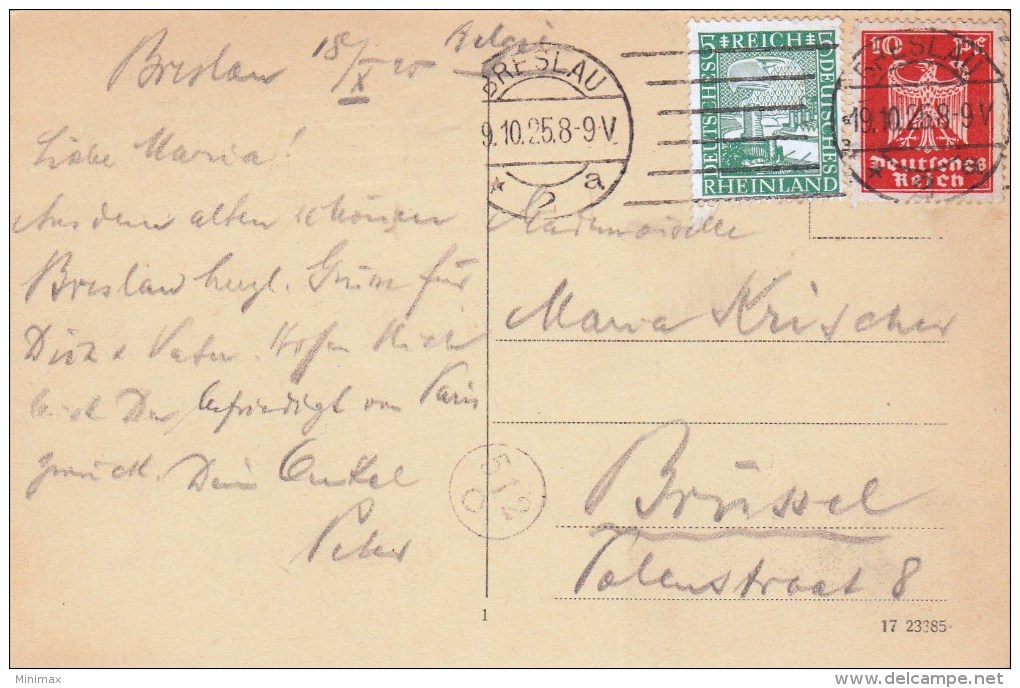 Breslau 18/X 25
Belgien
Liebe Maria!
Aus dem alten schönen
Breslau herzl. Grüsse für
Dich & Vater. Hoffentlich
bist Du befriedigt von Paris
zurück. Dein Onkel
Peter
5 REICH 5
DEUTSCHES
DEUTSCHES
RHEINLAND
10 Pf
Deutsches
Reich
BRESLAU
9.10.25.8-9.V.
* 2 a
BRESLAU
19.10.25.8-9.V.
Mademoiselle
Maria Krischer
Brüssel
Polenstraat 8
512
1
17 23385
Minimax
delcampe.net